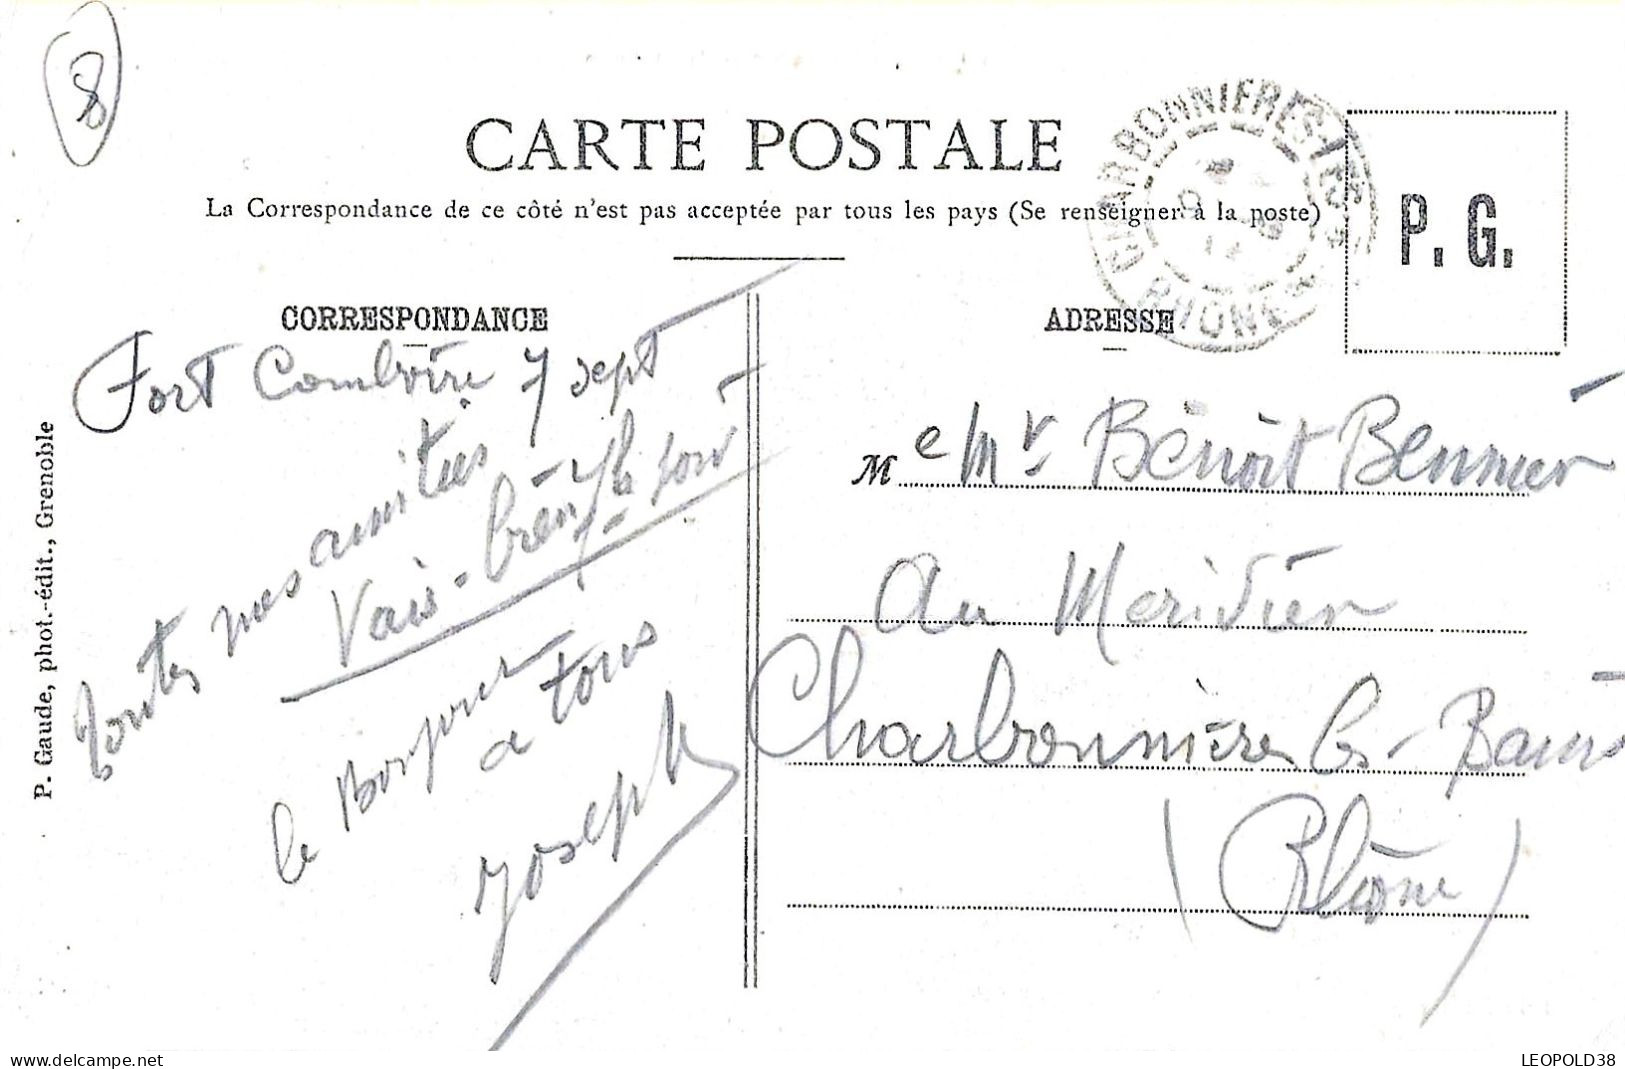 8
CARTE POSTALE
La Correspondance de ce côté n'est pas acceptée par tous les pays (Se renseigner à la poste)
CHARBONNIERES-LES-
RHONE
P. G.
CORRESPONDANCE
Fort Comboire 7 sept
Toutes mes amitiés
Vais-bien
le Bonjour
a tous
Joseph
P. Gaude, phot.-édit., Grenoble
ADRESSE
M e Mr Benoît
Au Meridien
Charbonnières les-Bains
(Rhône)
www.delcampe.net
LEOPOLD38